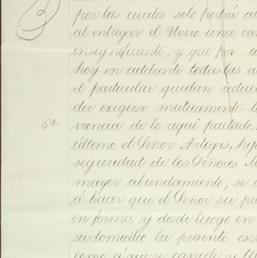 por las cuales solo podrá a
al entregar el Utero una can
insignificante, y que por a
hoy en adelante todas las a
el particular quedan reduc
der exigirse mutuamente l
5a vancia de lo aquí pactado.
último el Señor Artegas, hij
seguridad de los Señores M
mayor abundamiento, se
á hacer que el Señor su pa
en forma y desde luego en
su domicilio la presente esc
como á que se cancele y